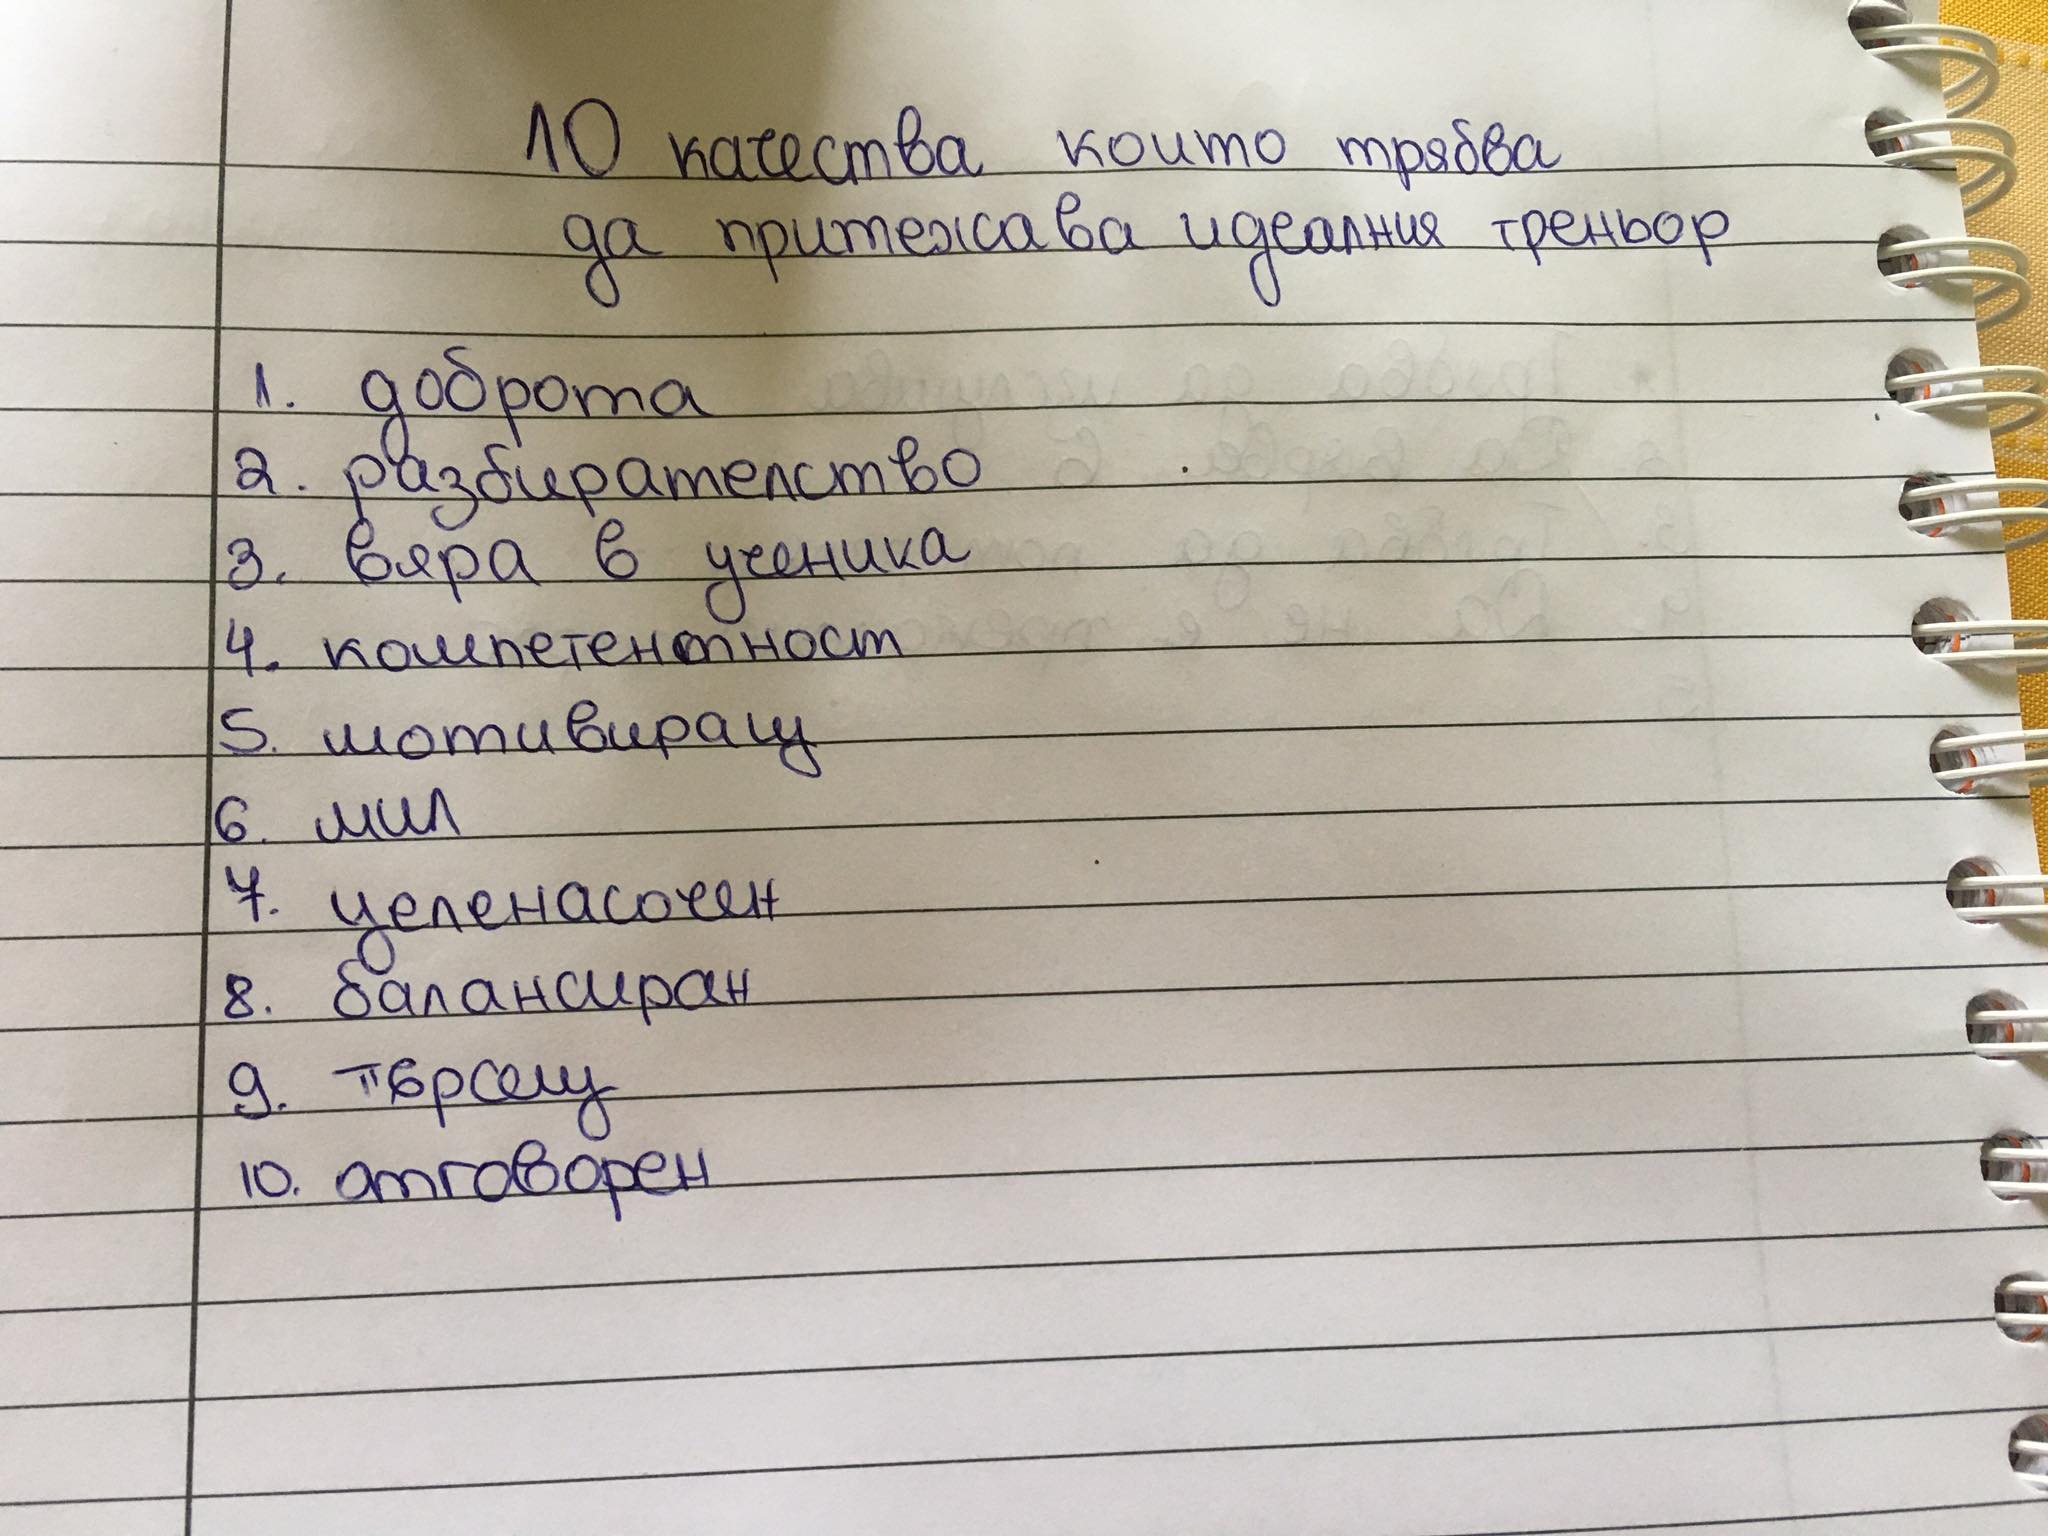 10 качества които трябва
да притежава идеалния треньор
1. доброта
2. разбирателство
3. вяра в ученика
4. компетентност
5. мотивиращ
6. мил
7. целенасочен
8. балансиран
9. търсещ
10. отговорен